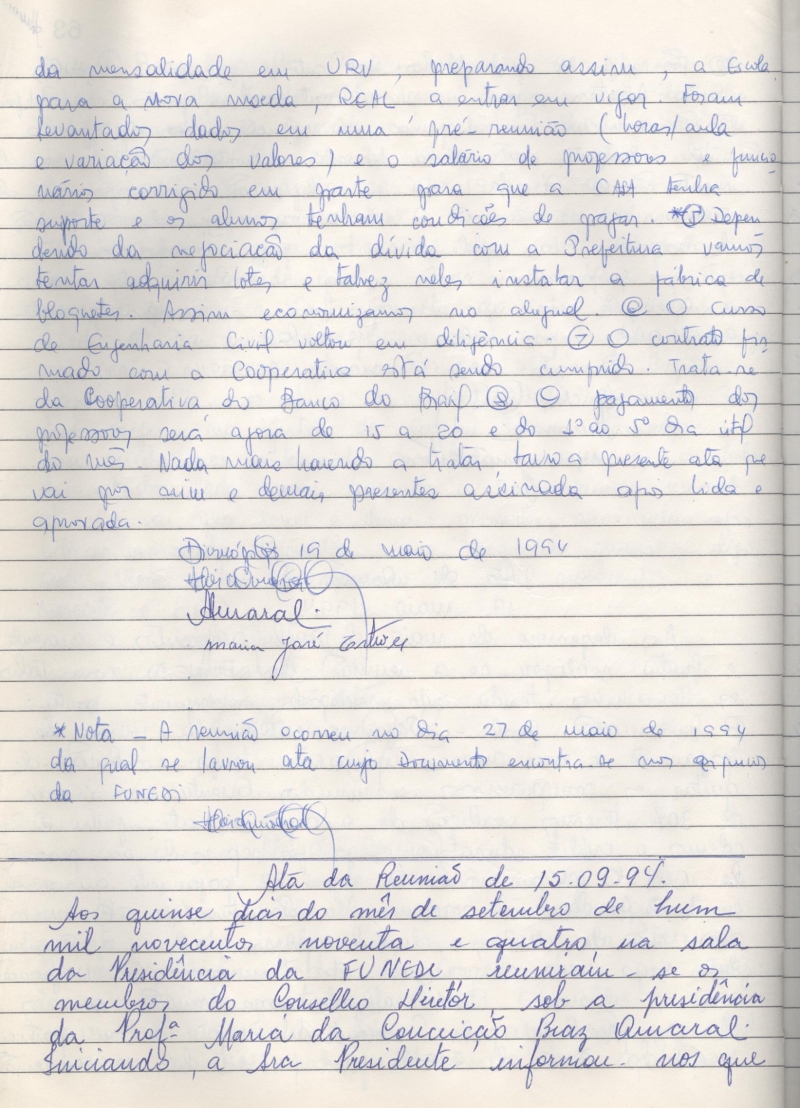 da mensalidade em URV, preparando assim, a Escola
para a nova moeda, REAL a entrar em vigor. Foram
levantados dados em uma pré-reunião (horas/aula
e variação dos valores) e o salário de professores e funcio
nários corrigido em parte para que a CASA tenha
suporte e os alunos tenham condições de pagar. *⑤ Depen
dendo da negociação da dívida com a Prefeitura vamos
tentar adquirir lotes e talvez neles instalar a fábrica de
bloquetes. Assim economizamos no aluguel. ⑥ O curso
de Engenharia Civil voltou em diligência. ⑦ O contrato fir
mado com a Cooperativa está sendo cumprido. Trata-se
da Cooperativa do Banco do Brasil ⑧ O pagamento dos
professores será agora de 15 a 20 e do 1º ao 5º dia útil
do mês. Nada mais havendo a tratar, lavro a presente ata que
vai por mim e demais presentes assinada após lida e
aprovada.
Divinópolis 19 de maio de 1994
Amaral.
Maria José Esteves
*Nota - A reunião ocorreu no dia 27 de maio de 1994
da qual se lavrou ata cujo documento encontra-se nos arquivos
da FUNEDI
Ata da Reunião de 15.09.94.
Aos quinse dias do mês de setembro de hum
mil novecentos noventa e quatro, na sala
da Presidência da FUNEDI reuniram-se os
membros do Conselho Diretor, sob a presidência
da Profª Maria da Conceição Braz Amaral.
Iniciando, a Sra Presidente informou-nos que